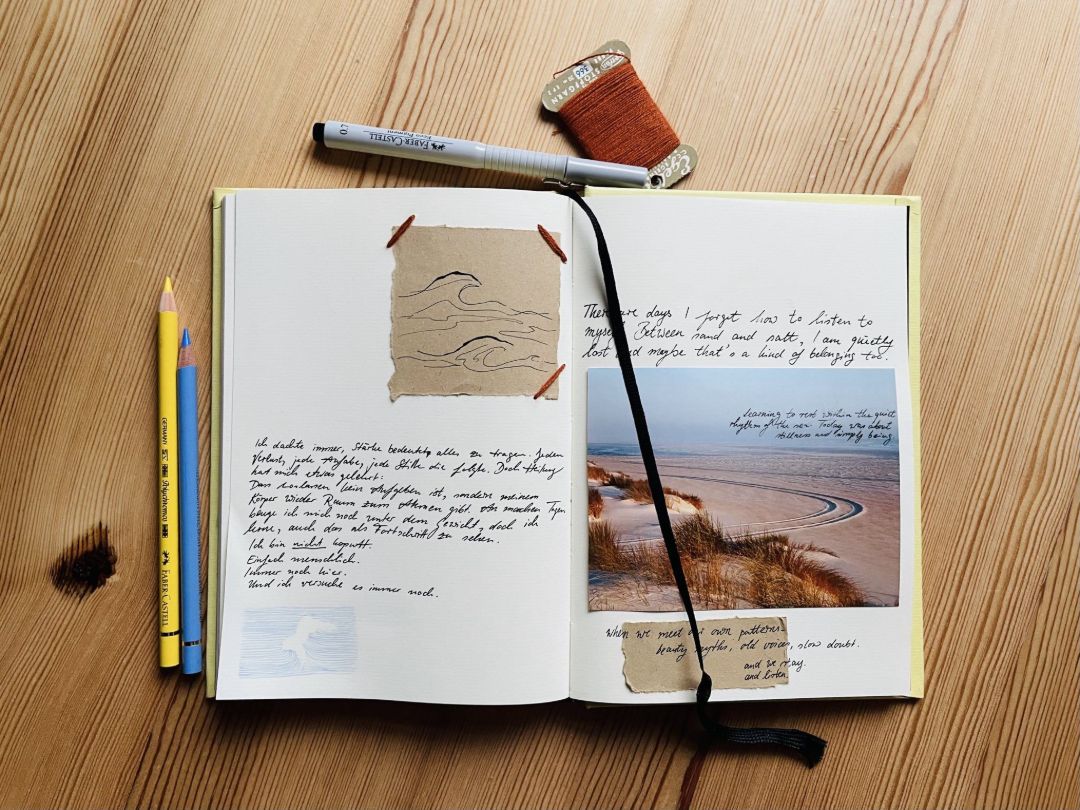 0.7
FABER-CASTELL
STOPFGARN
366
GERMANY
Polychromos
FABER-CASTELL
Ich dachte immer, Stärke bedeutet, alles zu tragen. Jeden
Verlust, jede Aufgabe, jede Stille die folgte. Doch Heilung
hat mich etwas gelehrt:
Dass loslassen kein Aufgeben ist, sondern meinem
Körper wieder Raum zum Atmen gibt. An manchen Tagen
beuge ich mich noch unter dem Gewicht, doch ich
lerne, auch das als Fortschritt zu sehen.
Ich bin nicht kaputt.
Einfach menschlich.
Immer noch hier.
Und ich versuche es immer noch.
There are days I forget how to listen to
myself. Between sand and salt, I am quietly
lost and maybe that's a kind of belonging too.
Learning to rest within the quiet
rhythm of the sea. Today was about
stillness and simply being
When we meet our own patterns-
beauty myths, old voices, slow doubt.
and we stay.
and listen.